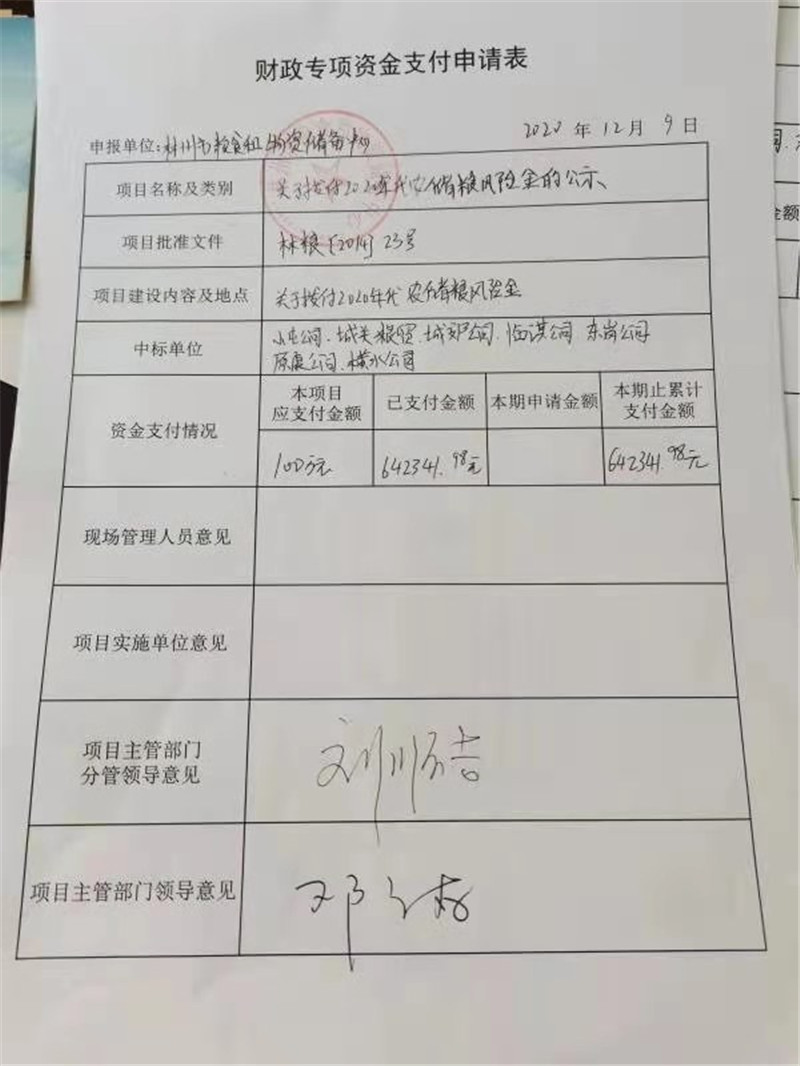 财政专项资金支付申请表
申报单位:林州市粮食和物资储备中心
2020 年 12 月 9 日
项目名称及类别 关于拨付2020年代农储粮风险金的公示、
项目批准文件 林粮[2014] 23号
项目建设内容及地点 关于拨付2020年代农储粮风险金
中标单位 小屯公司、城关粮贸、城郊公司、临淇公司 东岗公司
原康公司、横水公司
资金支付情况
本项目应支付金额 已支付金额 本期申请金额 本期止累计支付金额
100万元 642341.98元 642341.98元
现场管理人员意见
项目实施单位意见
项目主管部门
分管领导意见
刘顺吉
项目主管部门领导意见
邓
金额